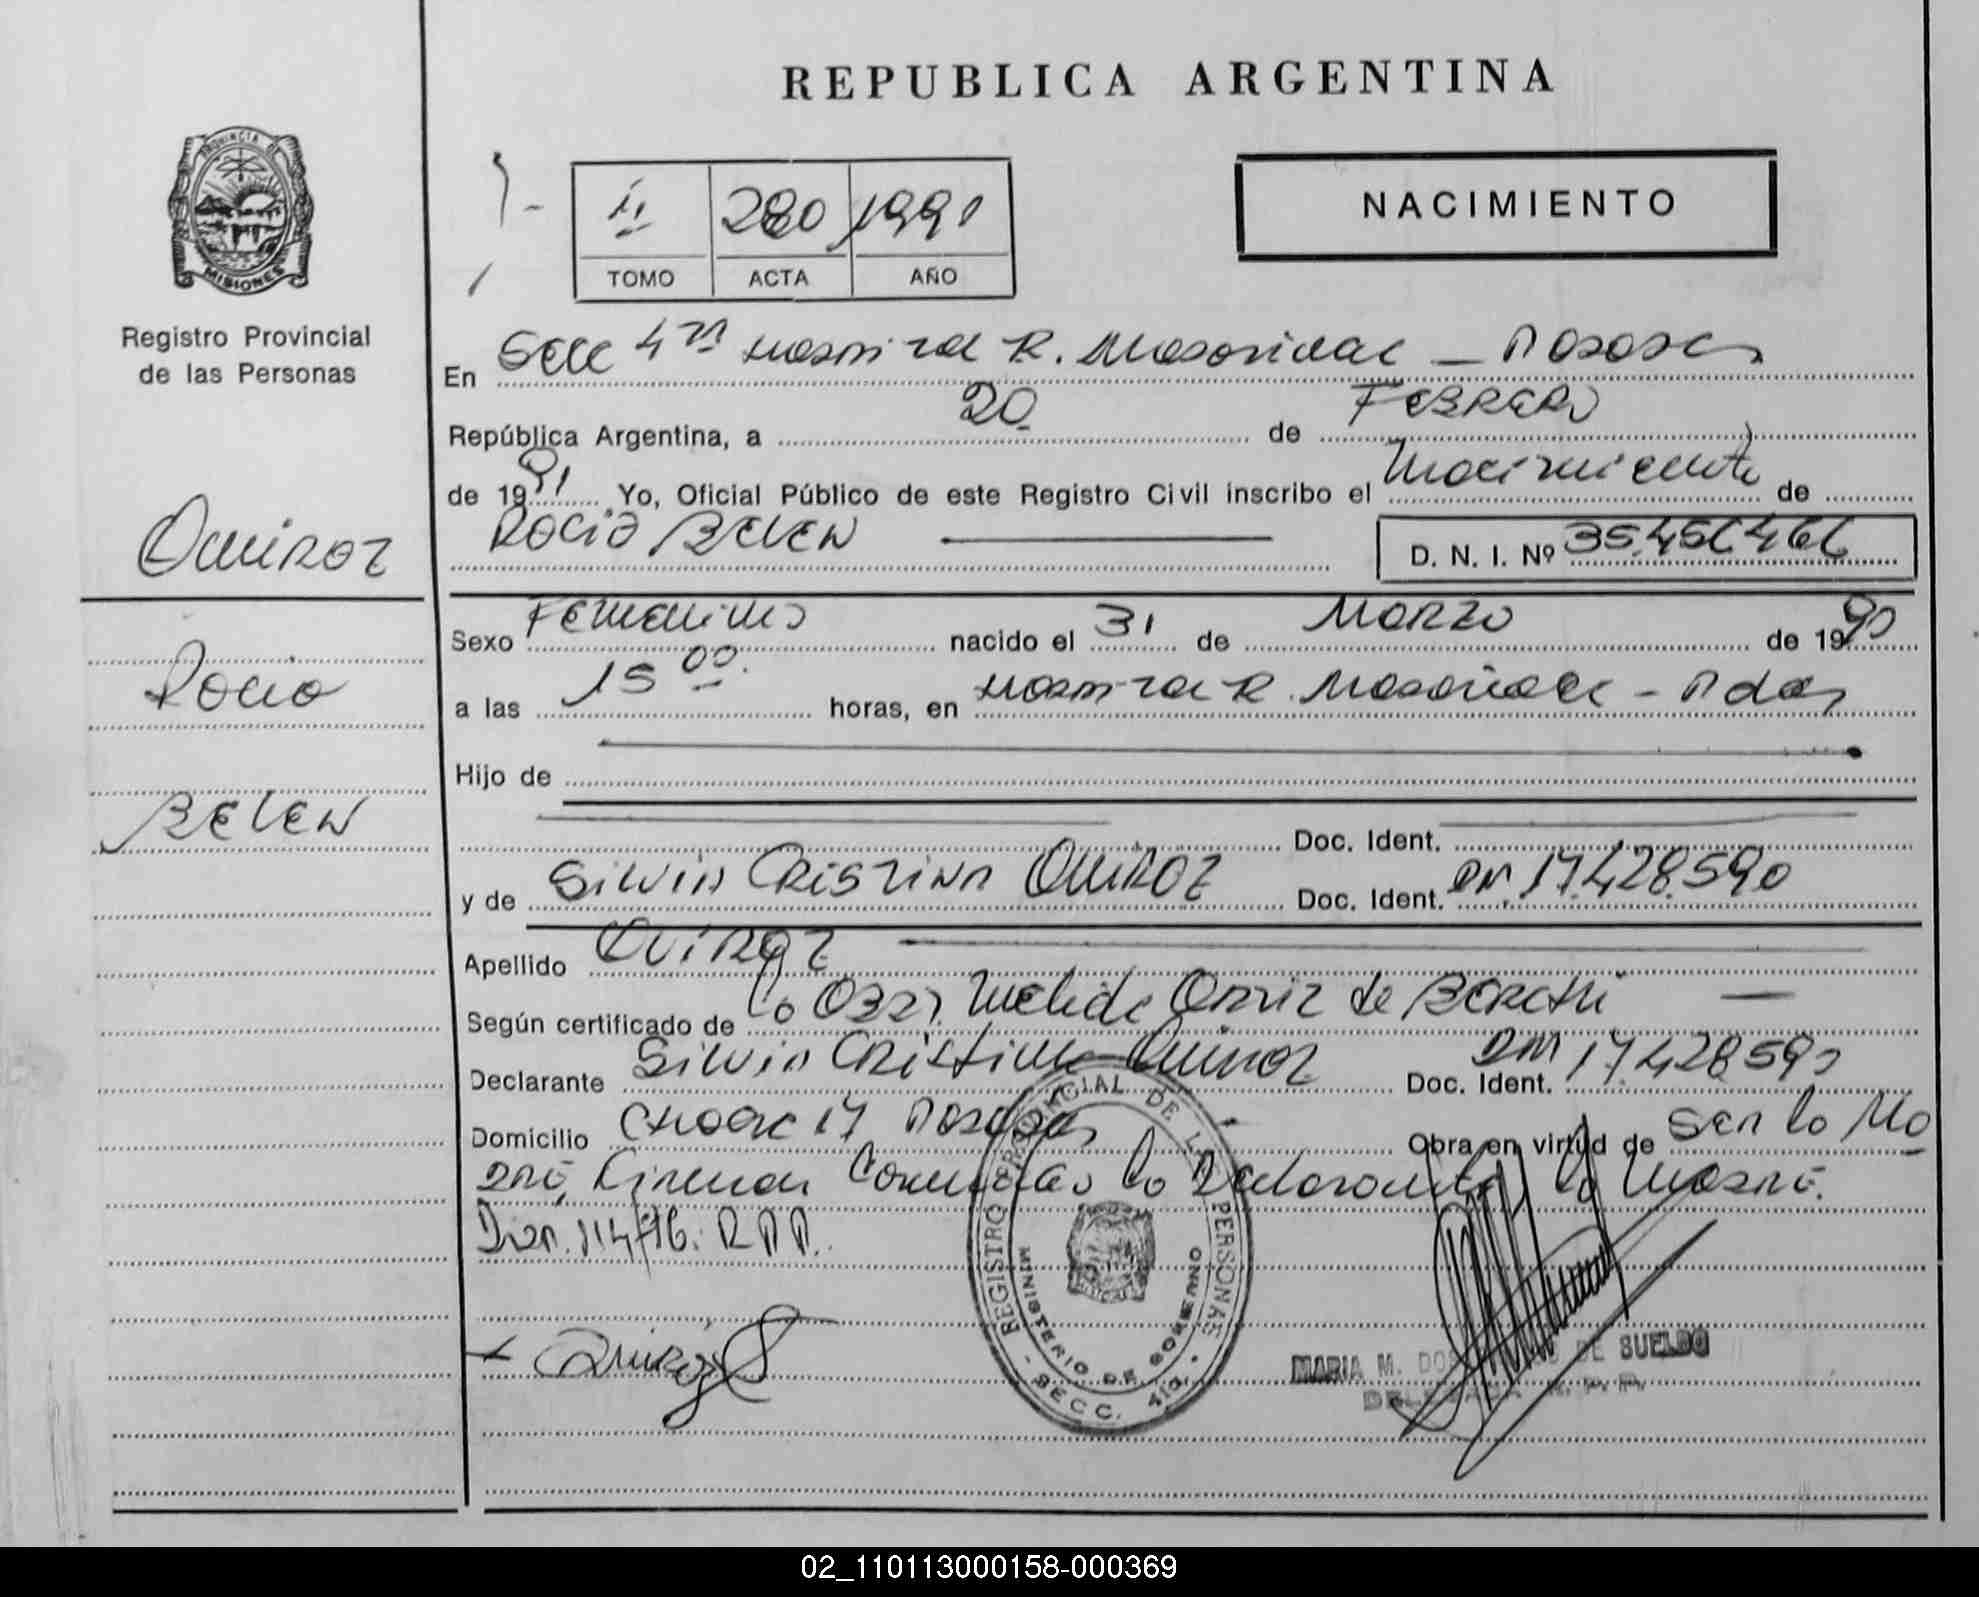 REPUBLICA ARGENTINA
PROVINCIA DE
MISIONES
Registro Provincial
de las Personas
II 280 1991
TOMO ACTA AÑO
NACIMIENTO
En Secc 4ta Hospital R. Madariaga - Posadas
República Argentina, a 20 de FEBRERO
de 1991 Yo, Oficial Público de este Registro Civil inscribo el Nacimiento de
ROCIO BELEN D. N. I. Nº 35.456466
QUIROZ
Rocio
BELEN
Sexo Femenino nacido el 31 de MARZO de 1990
a las 15 00 horas, en Hospital R. Madariaga - Pdas
Hijo de
Doc. Ident.
y de SILVIA CRISTINA QUIROZ Doc. Ident. DNI 17.428.590
Apellido QUIROZ
Según certificado de la Obst. de
Declarante Silvia Cristina Quiroz Doc. Ident. DNI 17.428590
Domicilio 17 Posadas Obra en virtud de Ser la Ma
dre, Firman la Declarante la
114/76. R.P.P.
Quiroz S
REGISTRO PROVINCIAL DE LAS PERSONAS
MINISTERIO DE GOBIERNO
- SECC. 4ta. -
MARIA M. DE SUELDO
DELEGADA R.P.P.
02_110113000158-000369